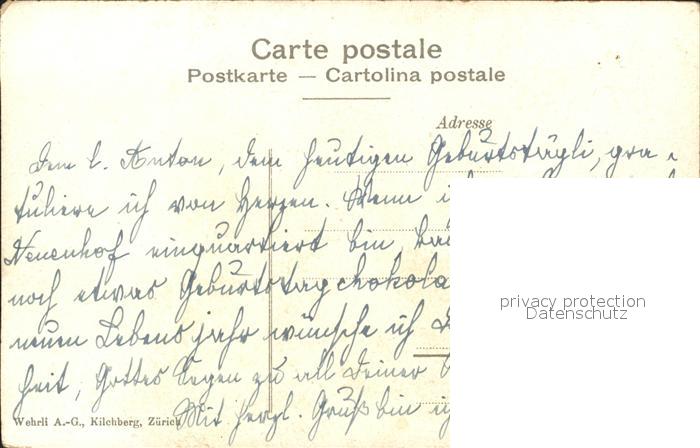 Carte postale
Postkarte — Cartolina postale
Adresse
Dem l. Anton, dem heutigen Geburtstägli, gra-
tuliere ich von Herzen. Wenn i
Neuenhof einquartiert bin,
noch etwas Geburtstagchokola
neuen Lebensjahr wünsche ich
heit, Gottes Segen zu all Deiner
Mit herzl. Gruß bin i
Wehrli A.-G., Kilchberg, Zürich
privacy protection
Datenschutz